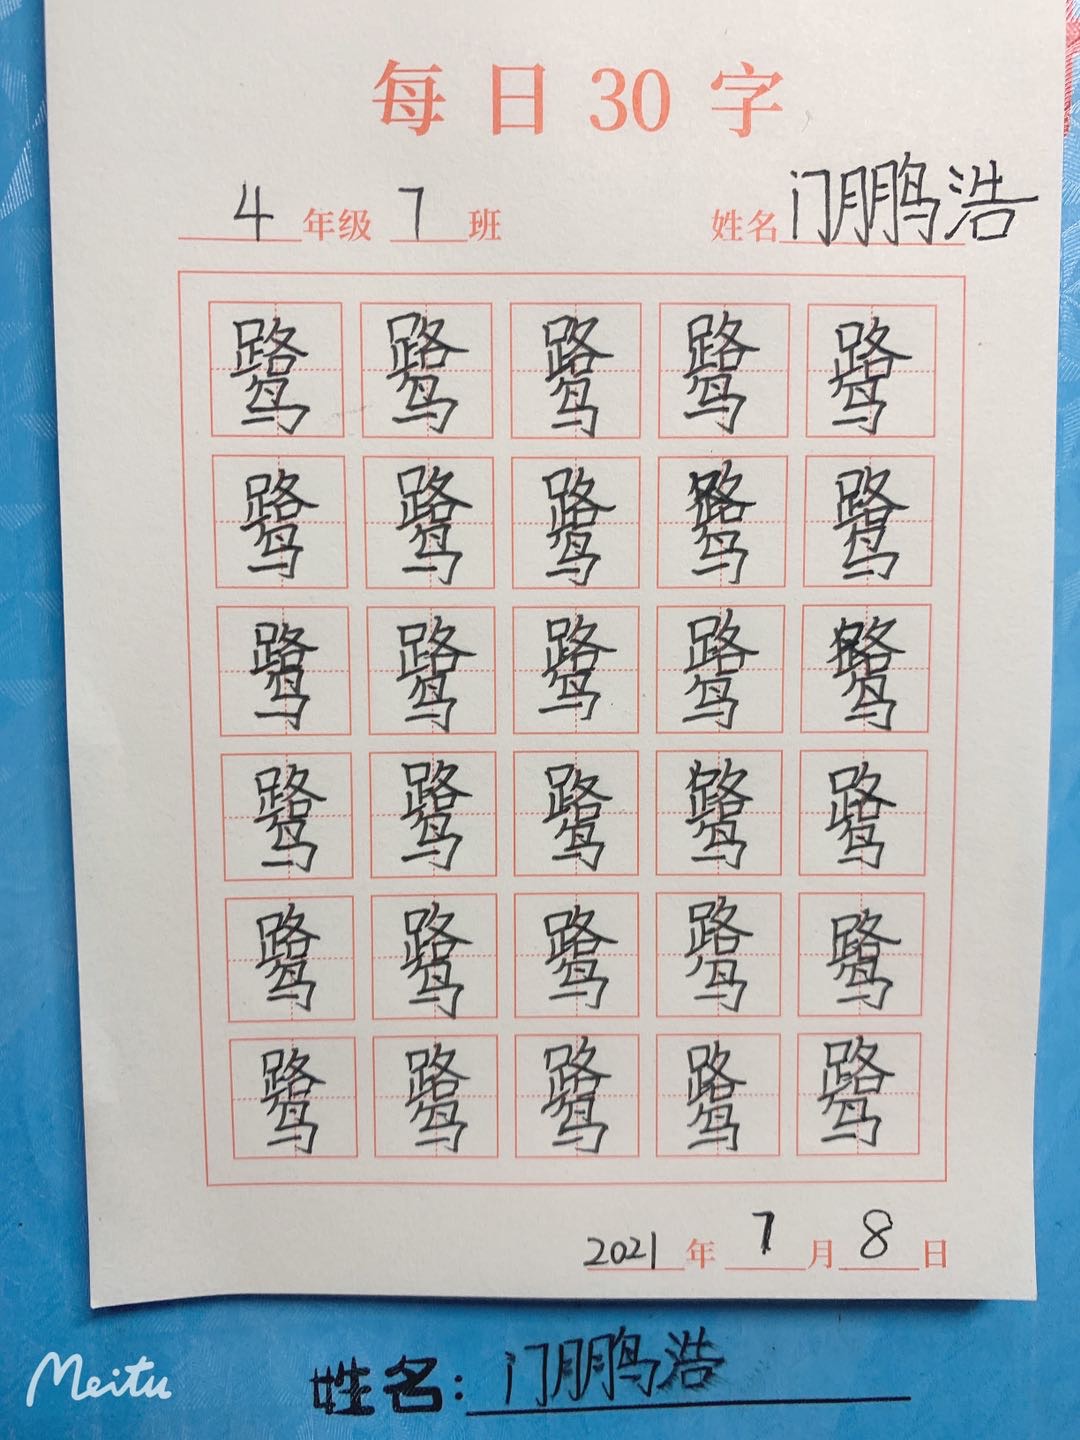 每日30字
4年级 7班 姓名 门鹏浩
鹭 鹭 鹭 鹭 鹭
鹭 鹭 鹭 鹭 鹭
鹭 鹭 鹭 鹭 鹭
鹭 鹭 鹭 鹭 鹭
鹭 鹭 鹭 鹭 鹭
鹭 鹭 鹭 鹭 鹭
2021年 7月8日
姓名: 门鹏浩
Meitu